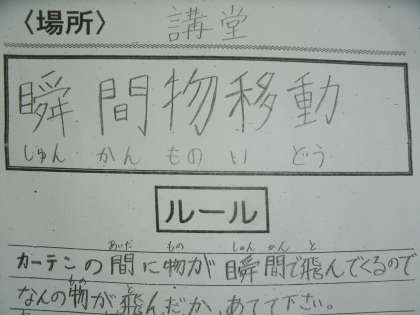 〈場所〉 講堂
瞬間物移動
しゅん かん もの い どう
ルール
あいだ もの しゅん かん と
カーテンの間に物が瞬間で飛んでくるので
もの と
なんの物が飛んだか、あてて下さい。